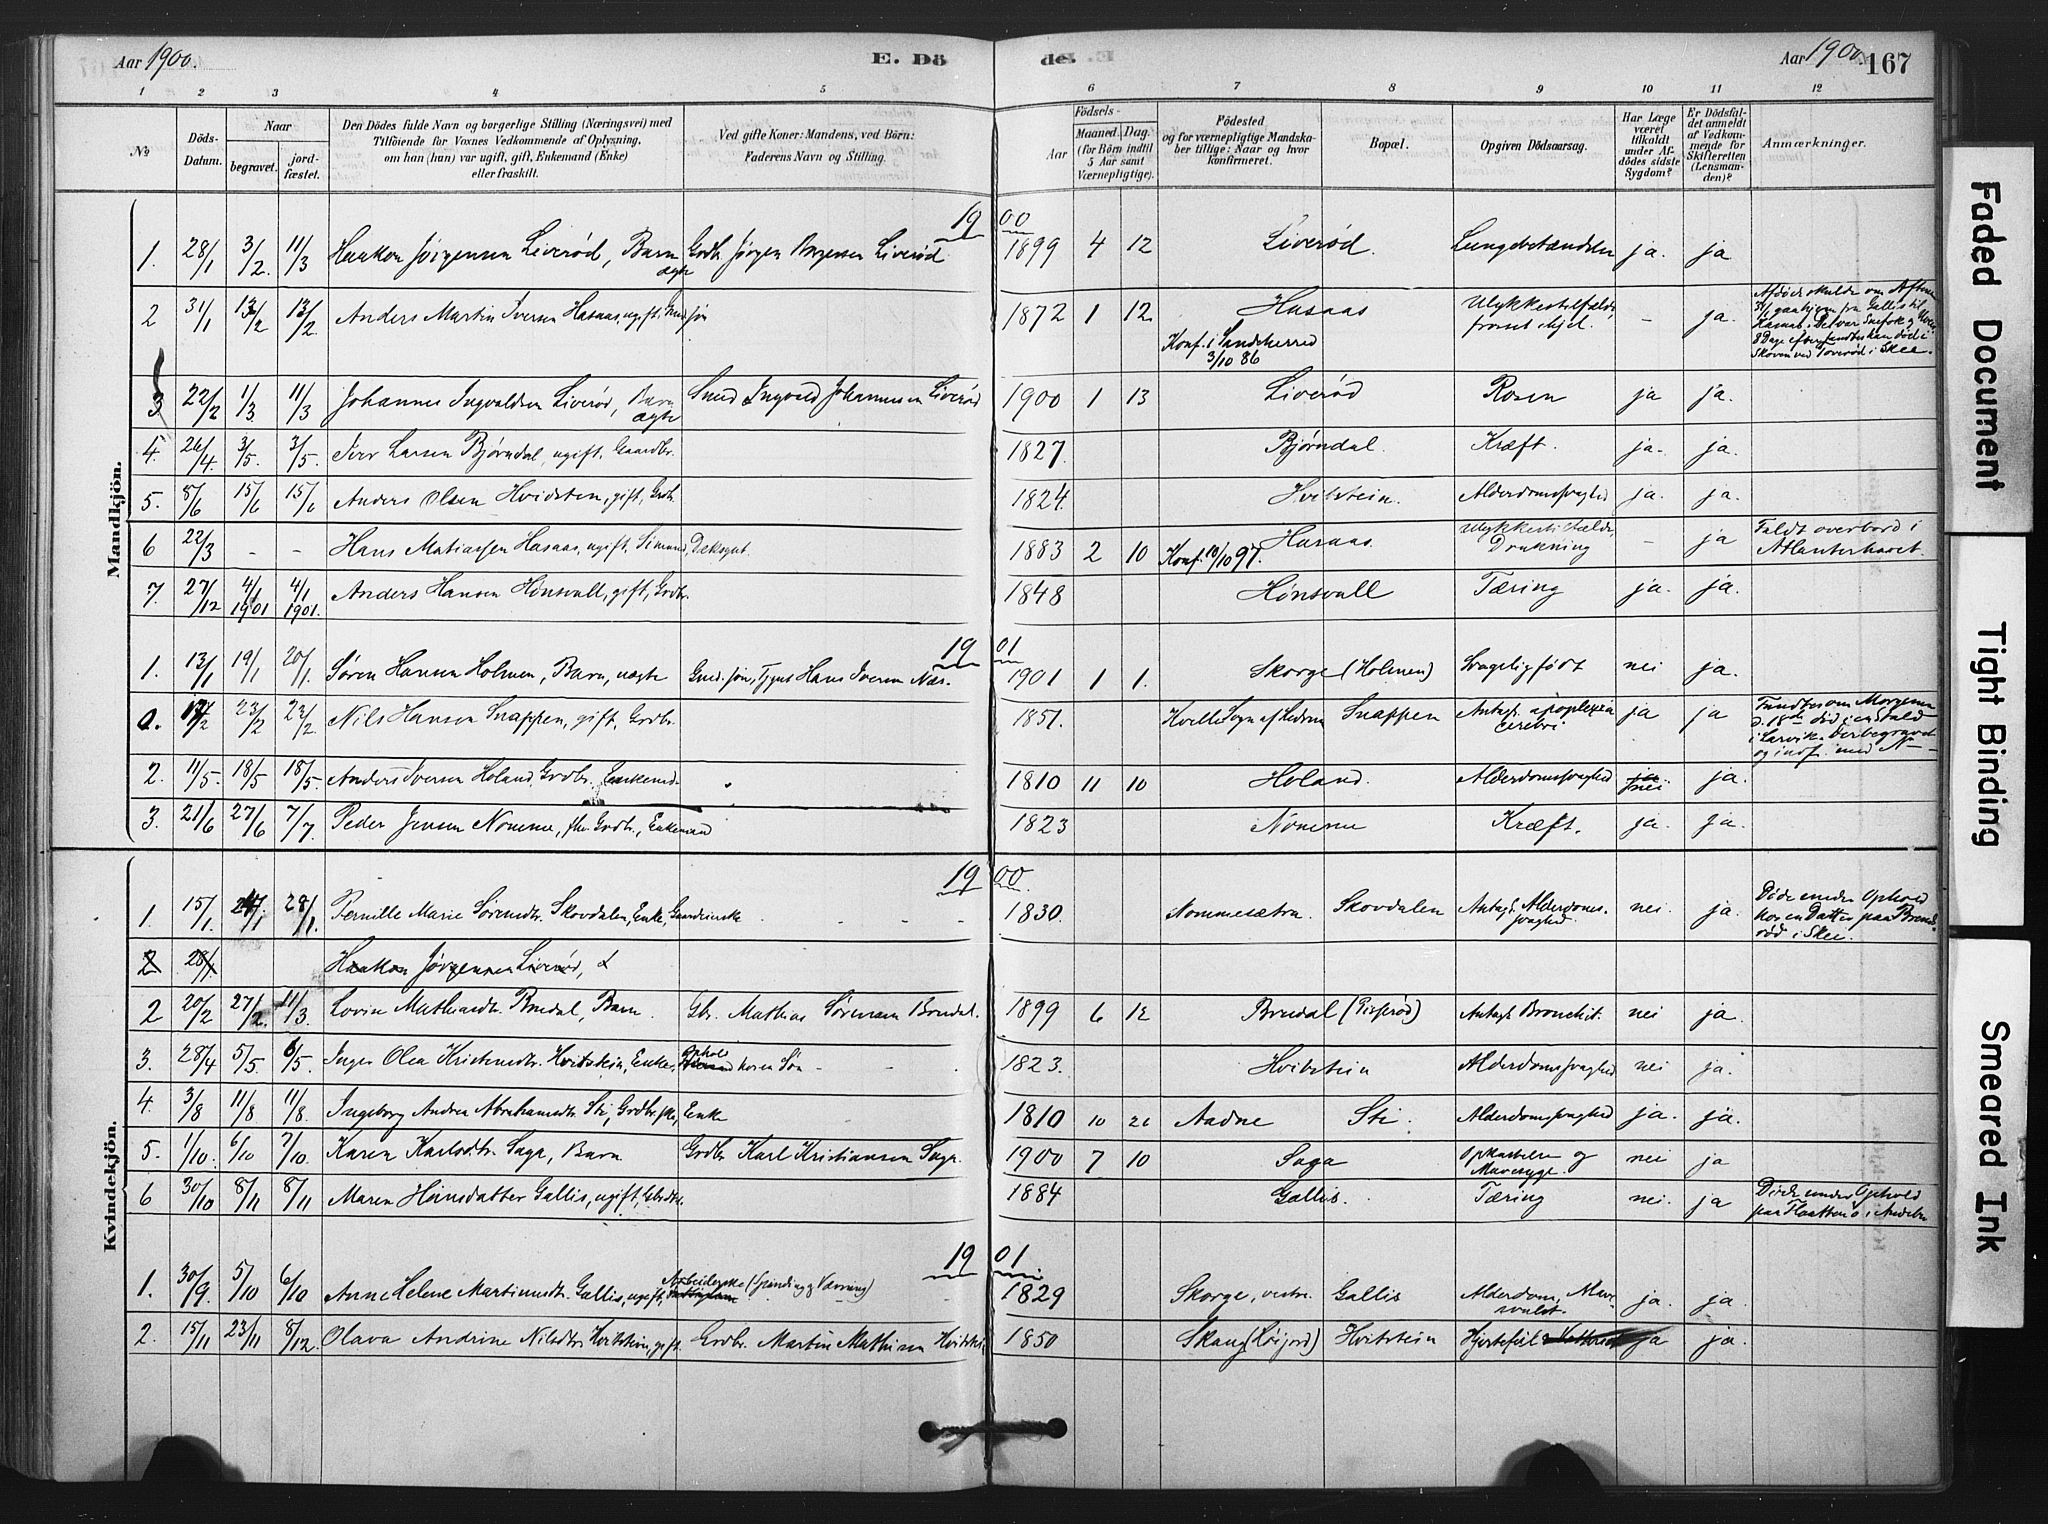 Aar 1900. E. Dö
de. Aar 1900. 167
1 2 3 4 5 6 7 8 9 10 11 12
No
Döds-Datum.
Naar
begravet.
jord-fæstet.
Den Dödes fulde Navn og borgerlige Stilling (Næringsvei) med
Tilföiende for Voxnes Vedkommende af Oplysning,
om han (hun) var ugift, gift, Enkemand (Enke)
eller fraskilt.
Ved gifte Koner: Mandens, ved Börn:
Faderens Navn og Stilling.
Födsels-
Aar
Maaned. Dag.
(for Börn indtil
5 Aar samt
Værnepligtige).
Födested
og for værnepligtige Mandska-
ber tillige: Naar og hvor
konfirmeret.
Bopæl.
Opgiven Dödsaarsag.
Har Læge
været
tilkaldt
under Af-
dödes sidste
Sygdom?
Er Dödsfal-
det anmeldt
af Vedkom-
mende for
Skifteretten
(Lensman-
den)?
Anmærkninger.
Mandkjön.
1900
1. 28/1 3/2. 11/3 Haakon Jörgensen Liveröd, Barn ægte Gbr. Jørgen Liveröd 1899 4 12 Liveröd. Lungebetændelse ja. ja
2 31/1 13/2 13/2 Anders Martin Iversen Hasaas, ugift, 1872 1 12. Hasaas Ulykkestilfælde, frosset ihjel. – ja.
Konf. i Sandeherred
3/10 86
Afdöde skulde om Aftenen
31/1 gaa hjem fra Gallis til
Hasaas. Det var Snefok og
8 Dage efter fandtes han död i
Skoven ved i Skee.
3 22/2 1/3 11/3 Johannes Ingvaldsen Liveröd, Barn ægte Smed Ingvald Johannesen Liveröd 1900 1 13 Liveröd Rosen ja ja.
4. 26/4 3/5. 3/5. Iver Larsen Bjørndal, ugift. Gaardbr. 1827. Bjørndal. Kræft. ja. ja.
5. 8/6 15/6 15/6 Anders Olsen Hvidsten, gift, Grdbr. 1824. Hvitstein. Alderdomssvaghed ja. ja.
6 22/3 – – Hans Mathiassen Hasaas, ugift. Sömand, Dæksgut. 1883 2 10 Hasaas. Ulykkestilfælde, Drukning – ja Faldt overbord i
Konf. 10/10 97. Atlanterhavet.
7. 27/12 4/1 1901 4/1 1901. Anders Hansen Hönsvall, gift, Grdbr. 1848 Hönsvall Tæring ja. ja.
1901
1. 13/1 19/1 20/1. Søren Hansen Holmen, Barn, uægte Hans Iversen Næs. 1901 1 1. Skorge (Holmen) Svagelig født nei ja.
17/2 23/2 23/2 Nils Hansen Snappen, gift, Grdbr. 1851. Hvelle Sogn af Hedrum Snappen Antagl. apoplexia cerebri ja ja
Fandtes om Morgenen
d. 18de död i en Stald
i Larvik. Der begravet
og indf. med N –
2. 11/5. 18/5 18/5. Anders Iversen Holand, Grdbr. Enkemd. 1810 11 10 Holand. Alderdomssvaghed nei ja.
3. 21/6 27/6 7/7. Peder Jensen Nomme, fhv. Grdbr., Enkemand 1823 Nomme Kræft. ja. ja.
Kvindekjön.
1900
1. 15/1 28/1. Pernille Marie Sørensdtr. Skovdalen, Enke, 1830. Nommesætra Skovdalen Antagl. Alderdomssvaghed. nei ja.
Döde under Ophold
hos en Datter paa
i Skee.
2 28/1 Haakon Jörgensen Liveröd,
2 20/2 27/2. 11/3. Lovise Mathiasdtr. Bredal, Barn. Gbr. Mathias Sørensen Bredal. 1899 6 12 Bredal Antagl. Bronchit. nei ja.
3. 28/4 5/5 6/5. Inger Olea Kristensdtr. Hvitstein, Enke, Ophold hos en Sön 1823. Hvitstein Alderdomssvaghed nei ja.
4. 3/8 11/8 11/8. Ingeborg Andrea Abrahamsdtr. Sti, Grdbr.ske, Enke 1810 10 26 Aadne Sti. Alderdomssvaghed ja. ja.
5. 1/10. 6/10 7/10. Karen Karlsdtr. Saga, Barn Grdbr. Karl Kristiansen Saga. 1900 7 10 Saga Opkastelse og Mavesyge. nei ja
6 30/10 8/11 8/11 Maren Heinsdatter Gallis, ugift, 1884 Gallis. Tæring nei. ja Döde under Ophold
paa i Andebu
1901
1. 30/9. 5/10 6/10 Anne Helene Martinusdtr. Gallis, ugift, Arbeiderske (Spinding og Vævning) 1829 Skorge, vestre. Gallis Alderdom, ja. ja.
2. 15/11 23/11 8/12. Olava Andrine Nilsdtr. Hvitstein, gift. Grdbr. Martin Mathisen Hvitstein 1850 Skaug (Höijord) Hvitstein Hjertefeil ja ja.
Faded Document
Tight Binding
Smeared Ink